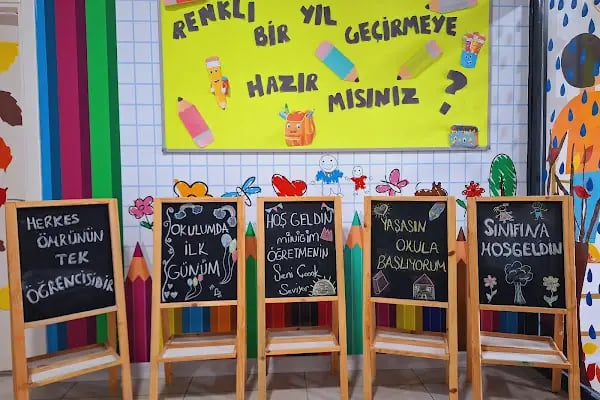 RENKLİ BİR YIL GEÇİRMEYE
HAZIR MISINIZ ?
HERKES
ÖMRÜNÜN
TEK
ÖĞRENCİSİDİR
OKULUMDA
İLK
GÜNÜM
HOŞ GELDİN
MİNİĞİM
ÖĞRETMENİN
Seni Çoook
Seviyor
YAŞASIN
OKULA
BAŞLIYORUM
SINIFINA
HOŞGELDİN